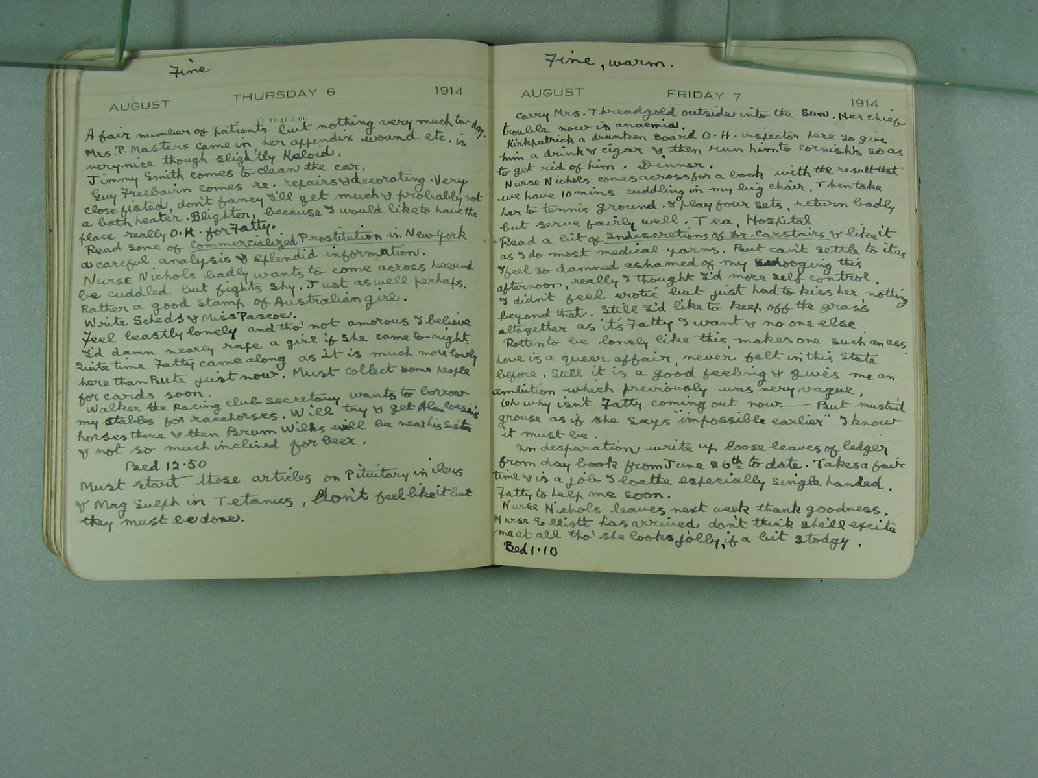 Fine
AUGUST THURSDAY 6 1914
A fair number of patients but nothing very much to-day.
Mrs. P. Masters came in her appendix wound etc. is
very nice though slightly Keloid.
Jimmy Smith comes to clean the car.
Guy Freebairn comes re. repairs & decorating. Very
close fisted, don't fancy I'll get much & probably not
a bath heater. Blighter, because I would like to have the
place really O.K. for Fatty.
Read some of Commercialized Prostitution in New York
a careful analysis & splendid information.
Nurse Nichols badly wants to come across
be cuddled but fights shy. Just as well perhaps.
Rather a good stamp of Australian girl.
Write Scheds & Miss Pascoe.
Feel beastly lonely and tho' not amorous I believe
I'd damn nearly rape a girl if she came to-night.
Quite time Fatty came along as it is much more lonely
here than Pute just now. Must collect some people
for cards soon.
Walker the Racing club secretary wants to borrow
my stables for racehorses. Will try & get Alan
horses there & then Brum Wilks will be near his
& not so much inclined for beer.
Bed 12.50
Must start those articles on Pituitary in
& Mag Sulph in Tetanus, don't feel like it but
they must be done.
Fine, warm.
AUGUST FRIDAY 7 1914
carry Mrs. Threadgold outside into the sun. Her chief
trouble now is anaemia.
Kirkpatrick a drunken Board O.H. inspector here so give
him a drink & cigar & then run him to Cornish's so as
to get rid of him. Dinner.
Nurse Nichols comes across for a book with the result that
we have 10 mins cuddling in my big chair. Then take
her to tennis ground. I play four sets, return badly
but serve fairly well. Tea, Hospital
Read a bit of Indiscretions of Dr. Carstairs & like it
as I do most medical yarns. But can't settle to it as
I feel so damned ashamed of my this
afternoon, really I thought I'd more self control.
I didn't feel erotic but just had to kiss her nothing
beyond that. Still I'd like to keep off the grass
altogether as it's Fatty I want & no one else
Rotten to be lonely like this, makes one such an ass.
Love is a queer affair, never felt in this state
before. Still it is a good feeling & gives me an
ambition which previously was very vague.
Oh why isn't Fatty coming out now. — But mustn't
grouse as if she says "impossible earlier" I know
it must be.
In desparation write up loose leaves of ledger
from day book from June 26th to date. Takes a fair
time & is a job I loathe especially single handed.
Fatty to help me soon.
Nurse Nichols leaves next week thank goodness.
Nurse Elliott has arrived don't think she'll excite
me at all tho' she looks jolly, if a bit stodgy.
Bed 1.10